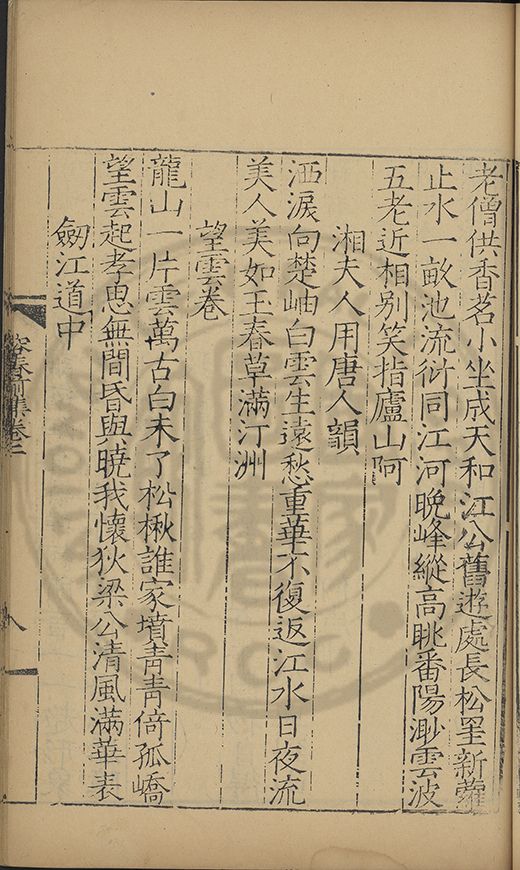 老僧供香茗小坐成天和江公舊遊處長松罣新蘿
止水一畝池流衍同江河晚峰縱高眺番陽渺雲波
五老近相别笑指廬山阿
湘夫人用唐人韻
洒淚向楚岫白雲生遠愁重華不復返江水日夜流
美人美如玉春草滿汀洲
望雲卷
龍山一片雲萬古白未了松楸誰家墳青青倚孤嶠
望雲起孝思無間昏與曉我懷狄梁公清風滿華表
劒江道中
容春前集卷二
八